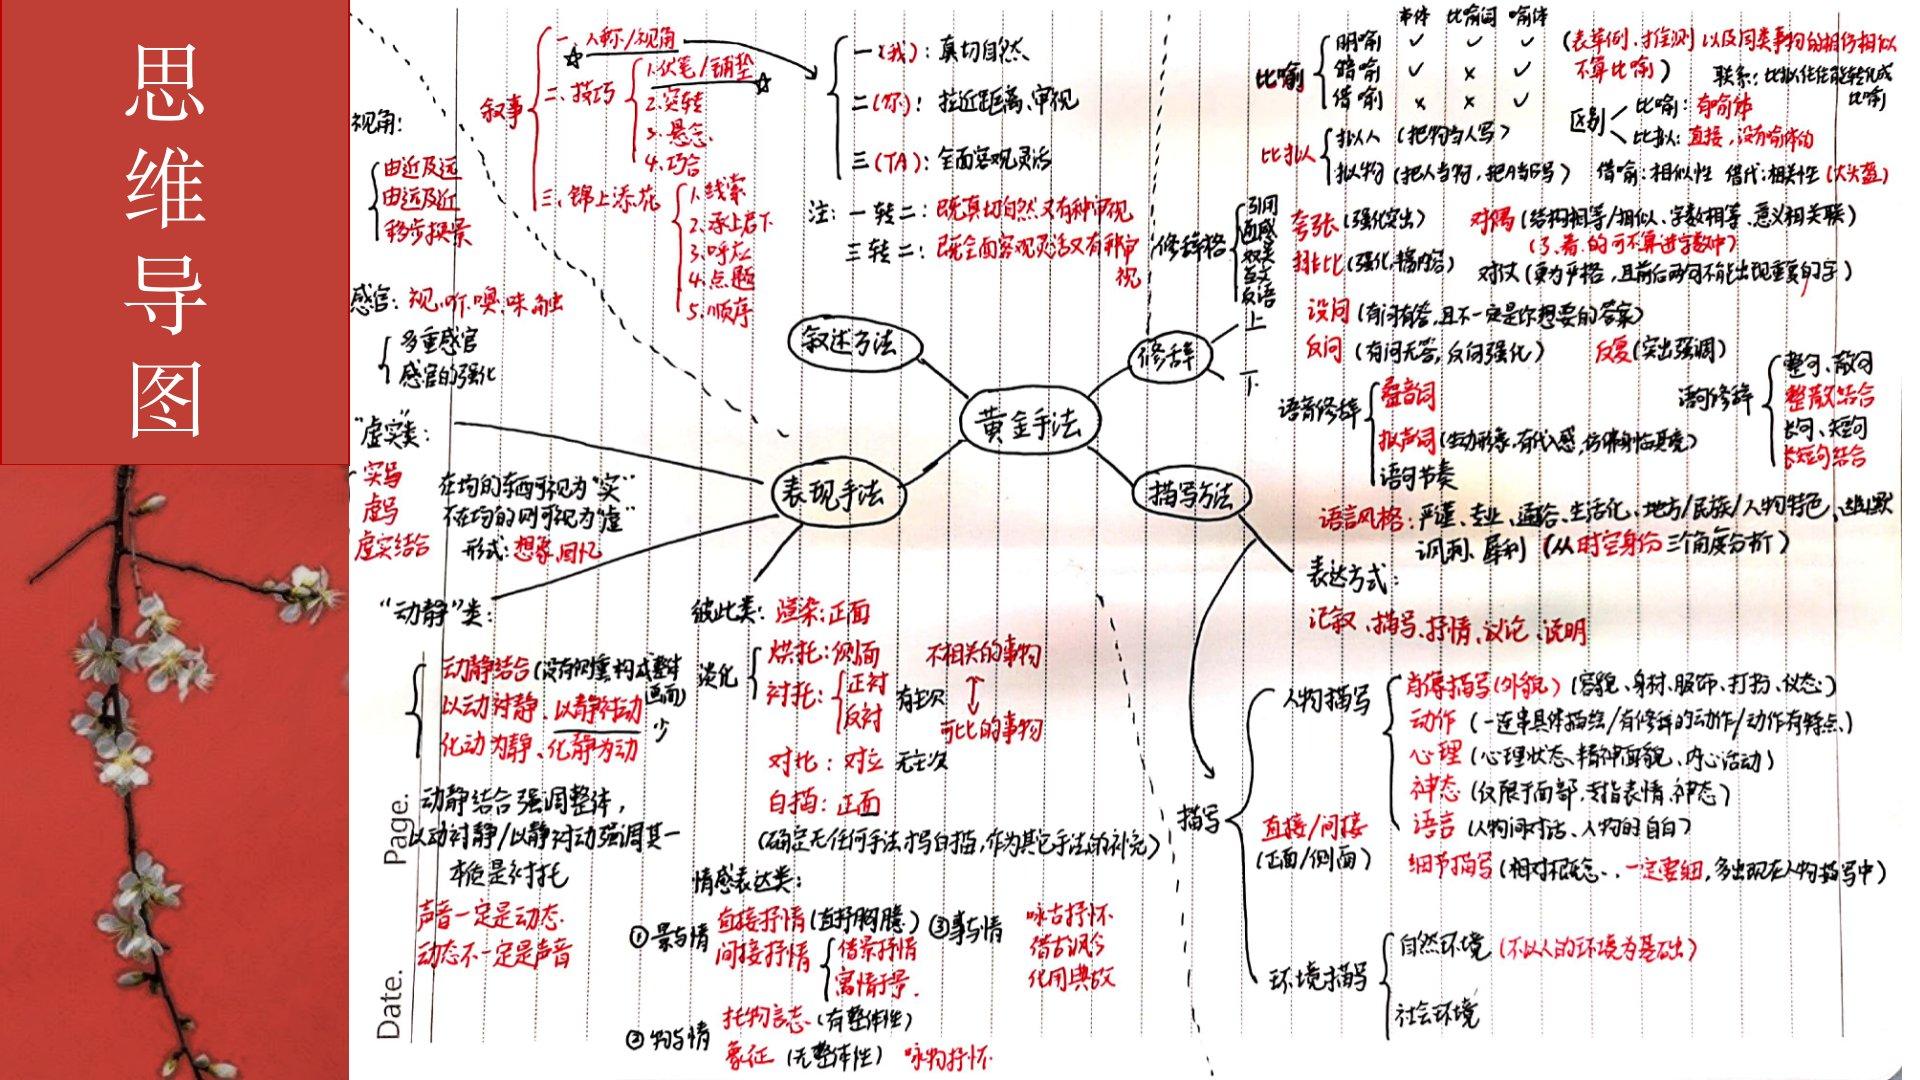 思维导图
视角：
由近及远
由远及近
移步换景
感官：视、听、嗅、味、触
多重感官
感官的强化
"虚实类：
实写
虚写
虚实结合
在场的东西可视为"实"
不在场的则可视为"虚"
形式：想象、回忆
"动静"类：
动静结合（没有侧重构成整体画面）
以动衬静、以静衬动 少
化动为静、化静为动
动静结合强调整体，
以动衬静/以静衬动强调其一
本质是衬托
声音一定是动态
动态不一定是声音
Page.
Date.
叙事
一、人称/视角
二、技巧
1.伏笔/铺垫
2.突转
3.悬念
4.巧合
三、锦上添花
1.线索
2.承上启下
3.呼应
4.点题
5.顺序
一（我）：真切自然
二（你）：拉近距离、审视
三（TA）：全面客观灵活
注：一转二：既真切自然又有种审视
三转二：既全面客观灵活又有种审视
叙述方法
黄金手法
修辞
表现手法
描写方法
上
下
彼此类：渲染：正面
淡化
烘托：侧面
衬托：
正衬
反衬
有主次
不相关的事物
可比的事物
对比：对立 无主次
白描：正面
（确定无任何手法才写白描，作为其它手法的补充）
情感表达类：
①景与情
直接抒情（直抒胸臆）
间接抒情
借景抒情
寓情于景.
②物与情
托物言志（有整体性）
象征（无整体性） 咏物抒怀
③事与情
咏古抒怀
借古讽今
化用典故
本体 比喻词 喻体
比喻
明喻 ✓ ✓ ✓
暗喻 ✓ × ✓
借喻 × × ✓
（表举例、推测以及同类事物的相仿相似
不算比喻）
联系：比拟往往能转化成比喻
区别
比喻：有喻体
比拟：直接，没有喻体的
比拟
拟人（把物当人写）
拟物（把人当物，把A当B写）
借喻：相似性 借代：相关性（大头盔）
修辞格
引用
通感
双关
互文
反语
夸张（强化突出）
对偶（结构相等/相似、字数相等、意义相关联）
（了、着、的可不算进字数中）
排比（强化，内容）
对仗（更为严格，且前后两句不能出现重复的字）
设问（有问有答，且不一定是你想要的答案）
反问（有问无答，反问强化）
反复（突出强调）
语音修辞
叠音词
拟声词（生动形象，有代入感，仿佛身临其境）
语句节奏
语句修辞
整句、散句
整散结合
长句、短句
长短句结合
语言风格：严谨、专业、通俗、生活化、地方/民族/人物特色、幽默
讽刺、犀利（从时空身份三个角度分析）
表达方式：
记叙、描写、抒情、议论、说明
描写
人物描写
肖像描写（外貌）（容貌、身材、服饰、打扮、仪态）
动作（一连串具体描绘/有修辞的动作/动作有特点）
心理（心理状态、精神面貌、内心活动）
神态（仅限于面部，专指表情、神态）
语言（人物间对话、人物的自白）
直接/间接
（正面/侧面）
细节描写（相对概念..一定要细，多出现在人物描写中）
环境描写
自然环境（不以人的环境为基础）
社会环境